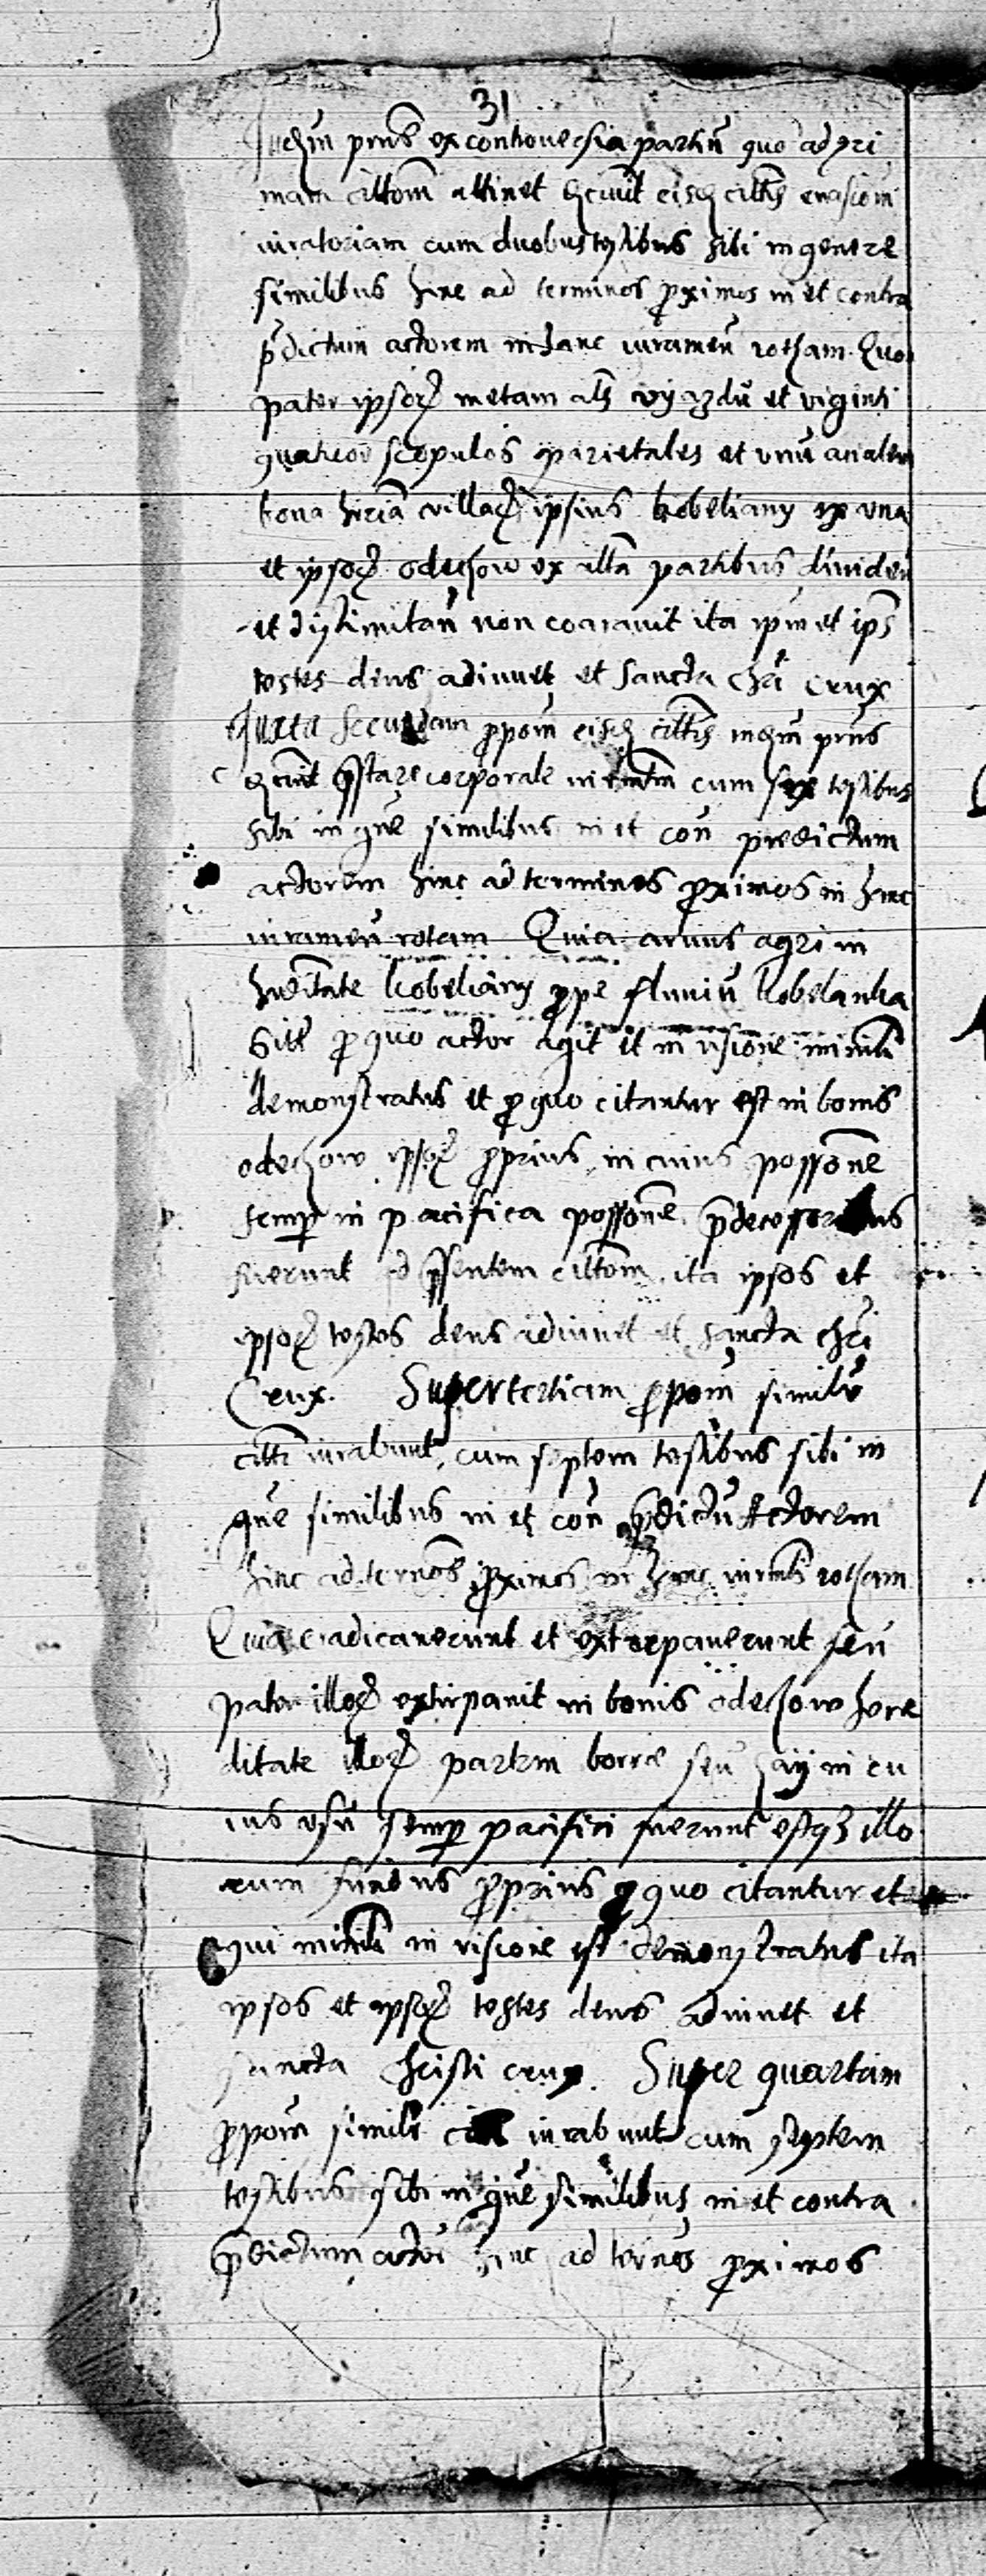 31
Iudicium pñs ex controuersia partiũ quo ad pri
mam cittõm attinet decreuit eisdem cittis euasiõm
iuratoriam cum duobus testibus sibi in genere
similibus hinc ad terminos proximos in et contra
pdictum actorem in hanc iuramen̄ rotham. Quod
pater ipsorꝫ metam als vyazdũ et viginti
quatuor scopulos parietales et vnũ acialem
bona villarꝫ ipsius Kobeliany ex vna
et ipsorꝫ odechow ex altã partibus diuideñ
et distimitañ non coarauit ita ipm et ips
testes deus adiuuet et sancta chri crux
Iuxta secundam ppoñ eisdem cittis pñs
decreuit pstare corporale iurãtm cum sex testibus
sibi in gñe similibus in et coñ predictum
actorem hinc ad terminos proximos in hanc
iurameñ rotam Quia aruus agri in
hrditate Kobeliany prope fluuiũ Kobelanka
sitꝰ pro quo actor agit et in visione minĩli
demonstratus et pro quo citantur est in bonis
odechow ipsorꝫ proprius in cuius possione
semper in pacifica possione pdecessoribus
fuerunt ad psentem cittõm ita ipsos et
ipsorꝫ testes deus adiuuet et sancta chri
Crux. Super tertiam ppoñ similr
citti iurabunt cum septem testibus sibi in
gñe similibus in et coñ pdictũ Actorem
hinc ad ternos proximos in hanc iurãti rotham
Quia eradicauerunt et extirpauerunt seu
pater illorꝫ extirpauit in bonis odechow here
ditate illorꝫ partem borre seu gaij in cu
ius vsũ semper pacifici fuerunt estqꝫ illo
rum fundus proprius pro quo citantur et
qui minĩli in visione est demonstratus ita
ipsos et ipsorꝫ testes deus adiuuet et
sancta christi crux. Super quartam
ppoñ similr citti iurabunt cum septem
testibus sibi in gñe similibus in et contra
pdictum actorẽ hinc ad ternos proximos